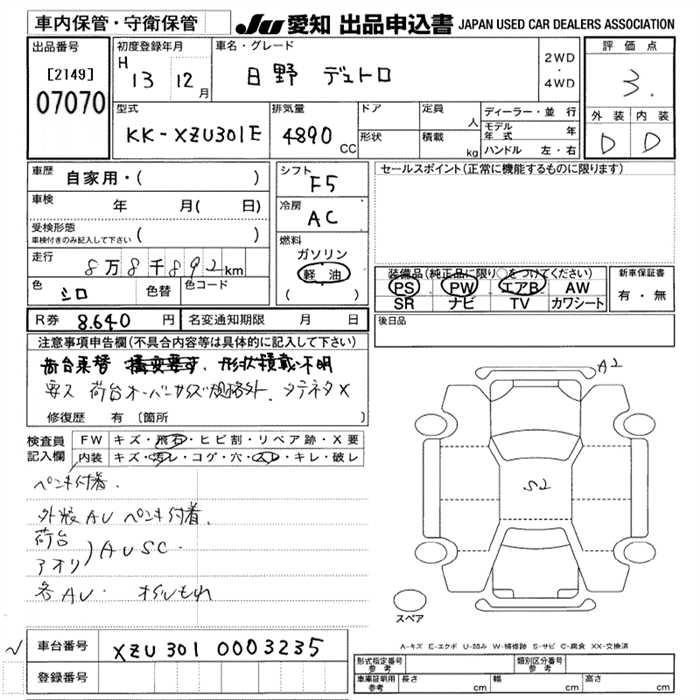 車内保管・守衛保管
JU 愛知 出品申込書 JAPAN USED CAR DEALERS ASSOCIATION
出品番号
[2149]
07070
初度登録年月
H 13 12月
車名・グレード
日野 デュトロ
2WD
・
4WD
評価点
3.
外装 内装
D D
型式
KK-XZU301E
排気量
4890 CC
ドア
形状
定員 人
積載 kg
ディーラー・並行
モデル年式 年
ハンドル 左・右
車歴 自家用・( )
車検 年 月( 日)
受検形態
車検付きのみ記入して下さい ( )
走行 8万8千892km
色 シロ
色替
色コード
シフト
F5
冷房
AC
燃料
ガソリン
軽油
( )
セールスポイント(正常に機能するものに限ります)
装備品(純正品に限り○をつけてください)
PS PW エアB AW
SR ナビ TV カワシート
新車保証書
有・無
R券 8.640円
名変通知期限 月 日
後日品
注意事項申告欄(不具合内容等は具体的に記入して下さい)
荷台乗替 構変要す、形状積載不明
要ス 荷台オーバーサイズ規格外、タテネタX
修復歴 有 〔箇所 〕
検査員
記入欄
FW キズ・飛石・ヒビ割・リペア跡・X要
内装 キズ・汚レ・コゲ・穴・スレ・キレ・破レ
ペンキ付着.
外板AU ペンキ付着.
荷台
アオリ )AUSC.
各AU. オイルもれ
A2
S2
スペア
A-キズ E-エクボ U-凹み W-補修跡 S-サビ C-腐食 XX-交換済
車台番号 XZU301 0003235
登録番号
形式指定番号
参考
類別区分番号
参考
車庫証明用
参考
長さ cm 幅 cm 高さ cm